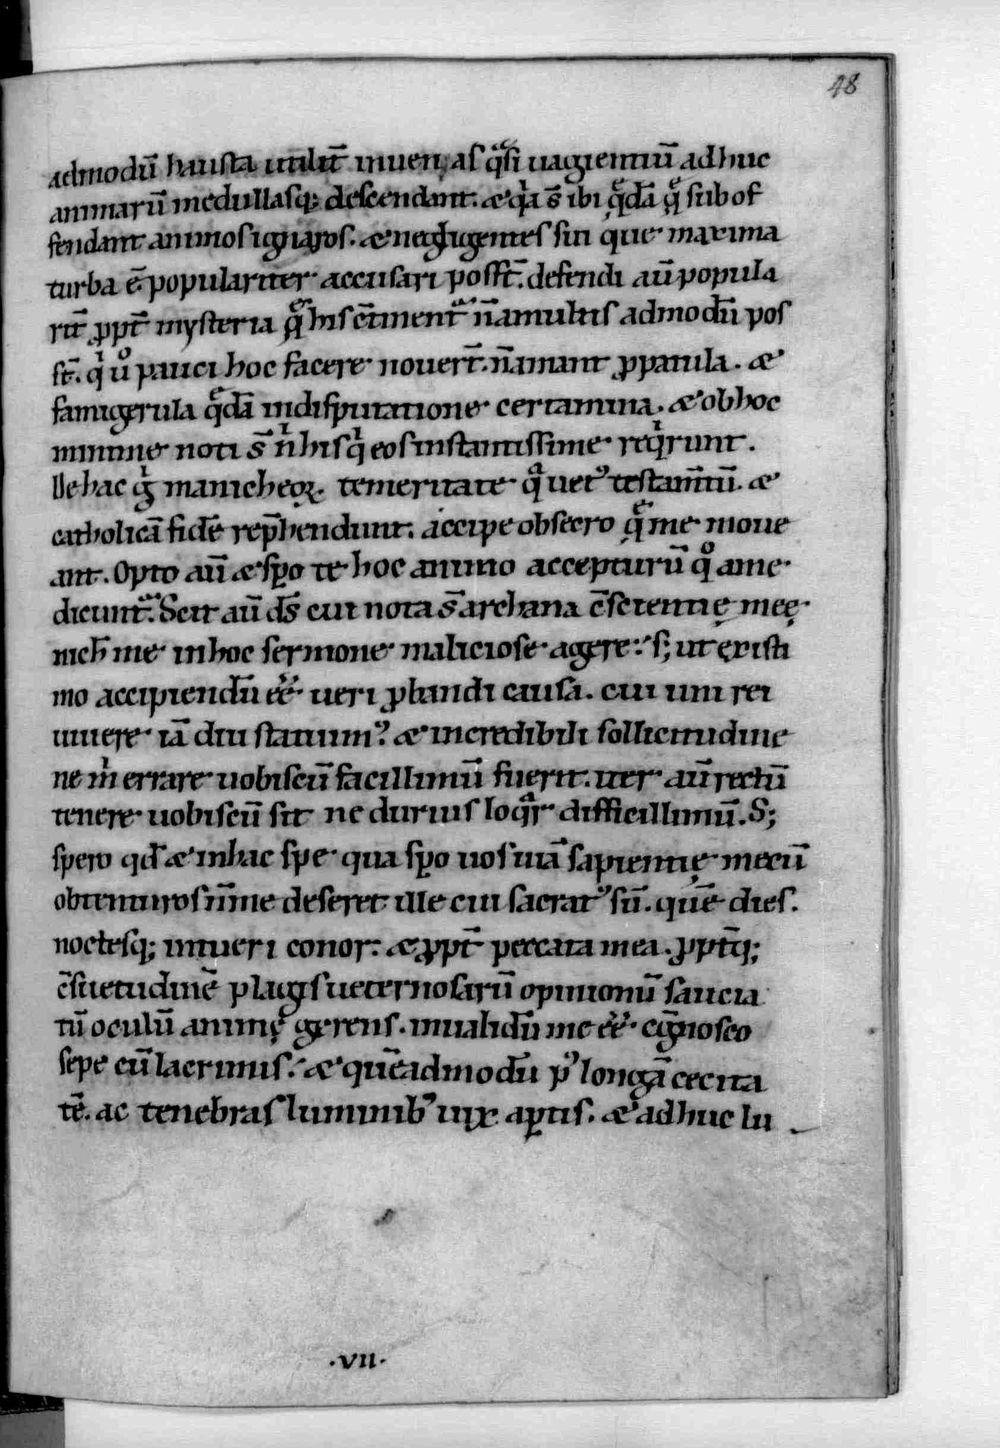 48
admodū hausta utilit̄ inuen; as q̄si uagientiū adhuc
animarū medullasq; descendant. & q̄a s̄ ibi quędā quę subof
fendant animos ignaros. & neglegentes sui que maxima
turba ē. populariter accusari poss̄t. defendi aū popula
rit̄ ꝓpt̄ mysteria quę his c̄tinent̄ n̄ a multis admodū pos
st̄. qͥ ů pauci hoc facere nouer̄t. n̄ amant ꝓpatula. &
famigerula quędā in disputatione certamina. & ob hoc
minime noti s̄ nͥ his qͥ eos instantissime reqͥrunt.
De hac gͥ manicheoꝝ. temeritate qͣ uetꝰ testam̄tū. &
catholicā fidē rep̄hendunt. accipe obsecro quę me moue
ant. Opto aū & sꝑo te hoc animo accepturū qͦ a me
dicunt̄. Scit aū d̄s cui nota s̄ archana c̄scientię meę
nich̄ me in hoc sermone maliciose agere. s; ut existi
mo accipiendū ēē. ueri ꝓbandi causa. cui uni rei
uiuere iā diu statuimꝰ & incredibili sollicitudine
ne m̄ errare uobiscū facillimū fuerit. iter aū rectū
tenere uobiscū sit ne durius loqͣr difficillimū. S;
spero qd̄ & in hac spe qua sꝑo uos uiā sapientię mecū
obtenturos n̄ me deseret ille cui sacratꝰ sū. quē dies.
noctesq; intueri conor. & ꝓpt̄ peccata mea. ꝓpt̄q;
c̄suetudinē plagis ueternosarū opinionū saucia
tū oculū animę gerens. inualidū me ēē cͦgnosco
sepe cū lacrimis. & quēadmodū pꝰ longā cecita
tē. ac tenebras luminibꝰ uix aꝑtis. & adhuc lu
·VII·